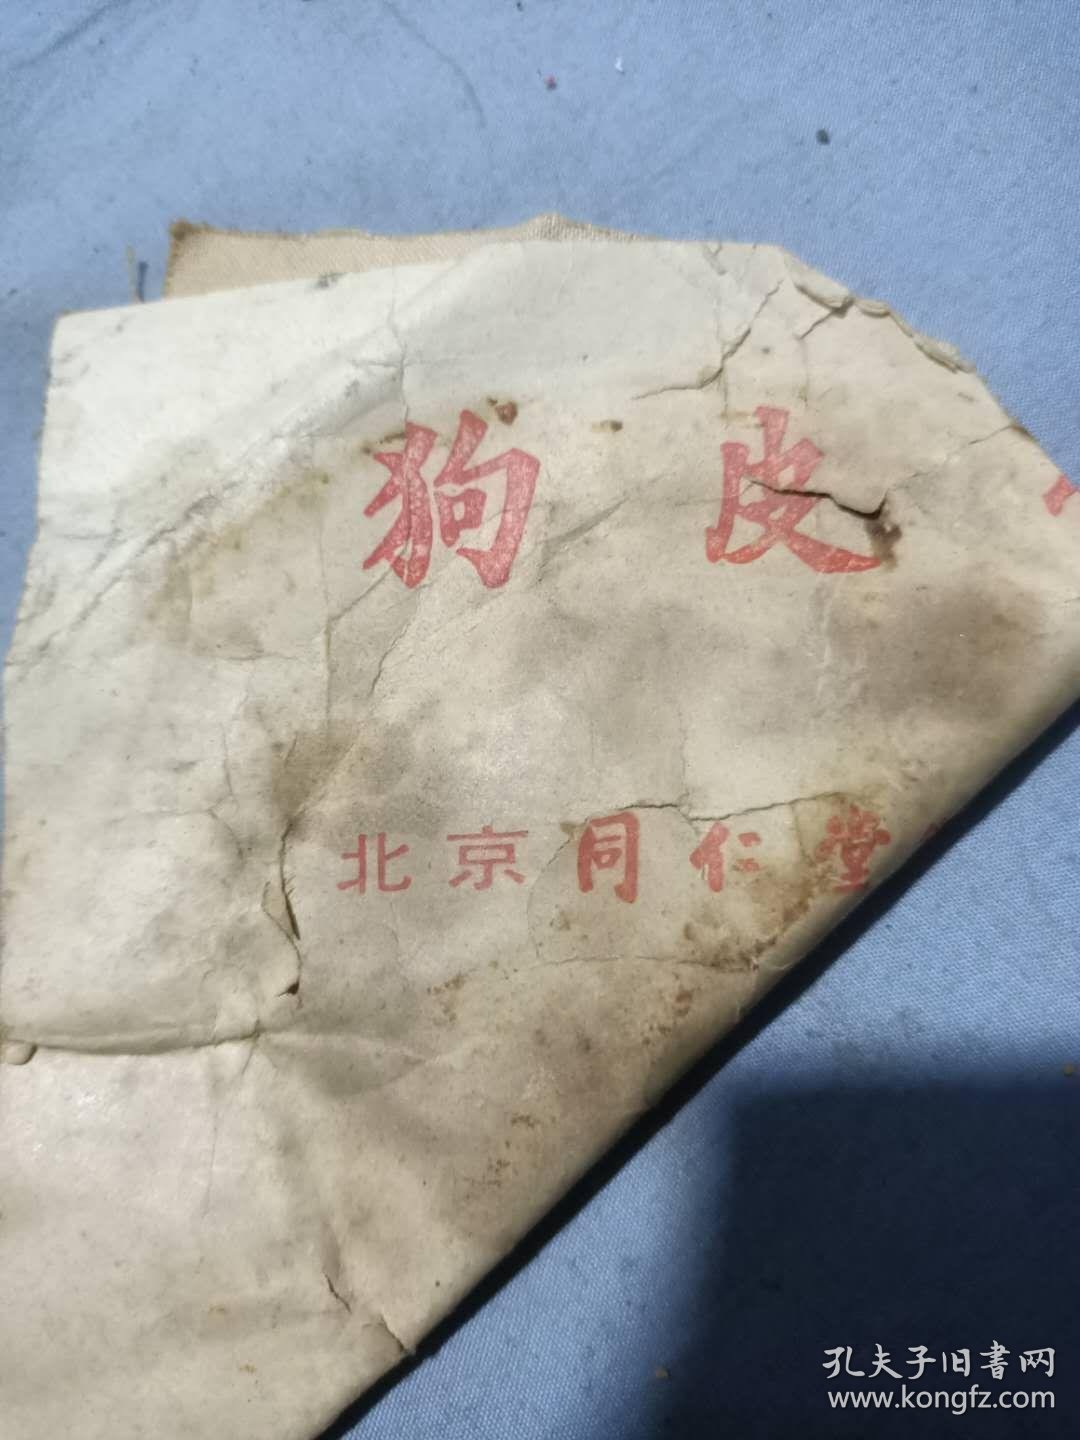 狗皮
北京同仁堂
孔夫子旧書网
www.kongfz.com